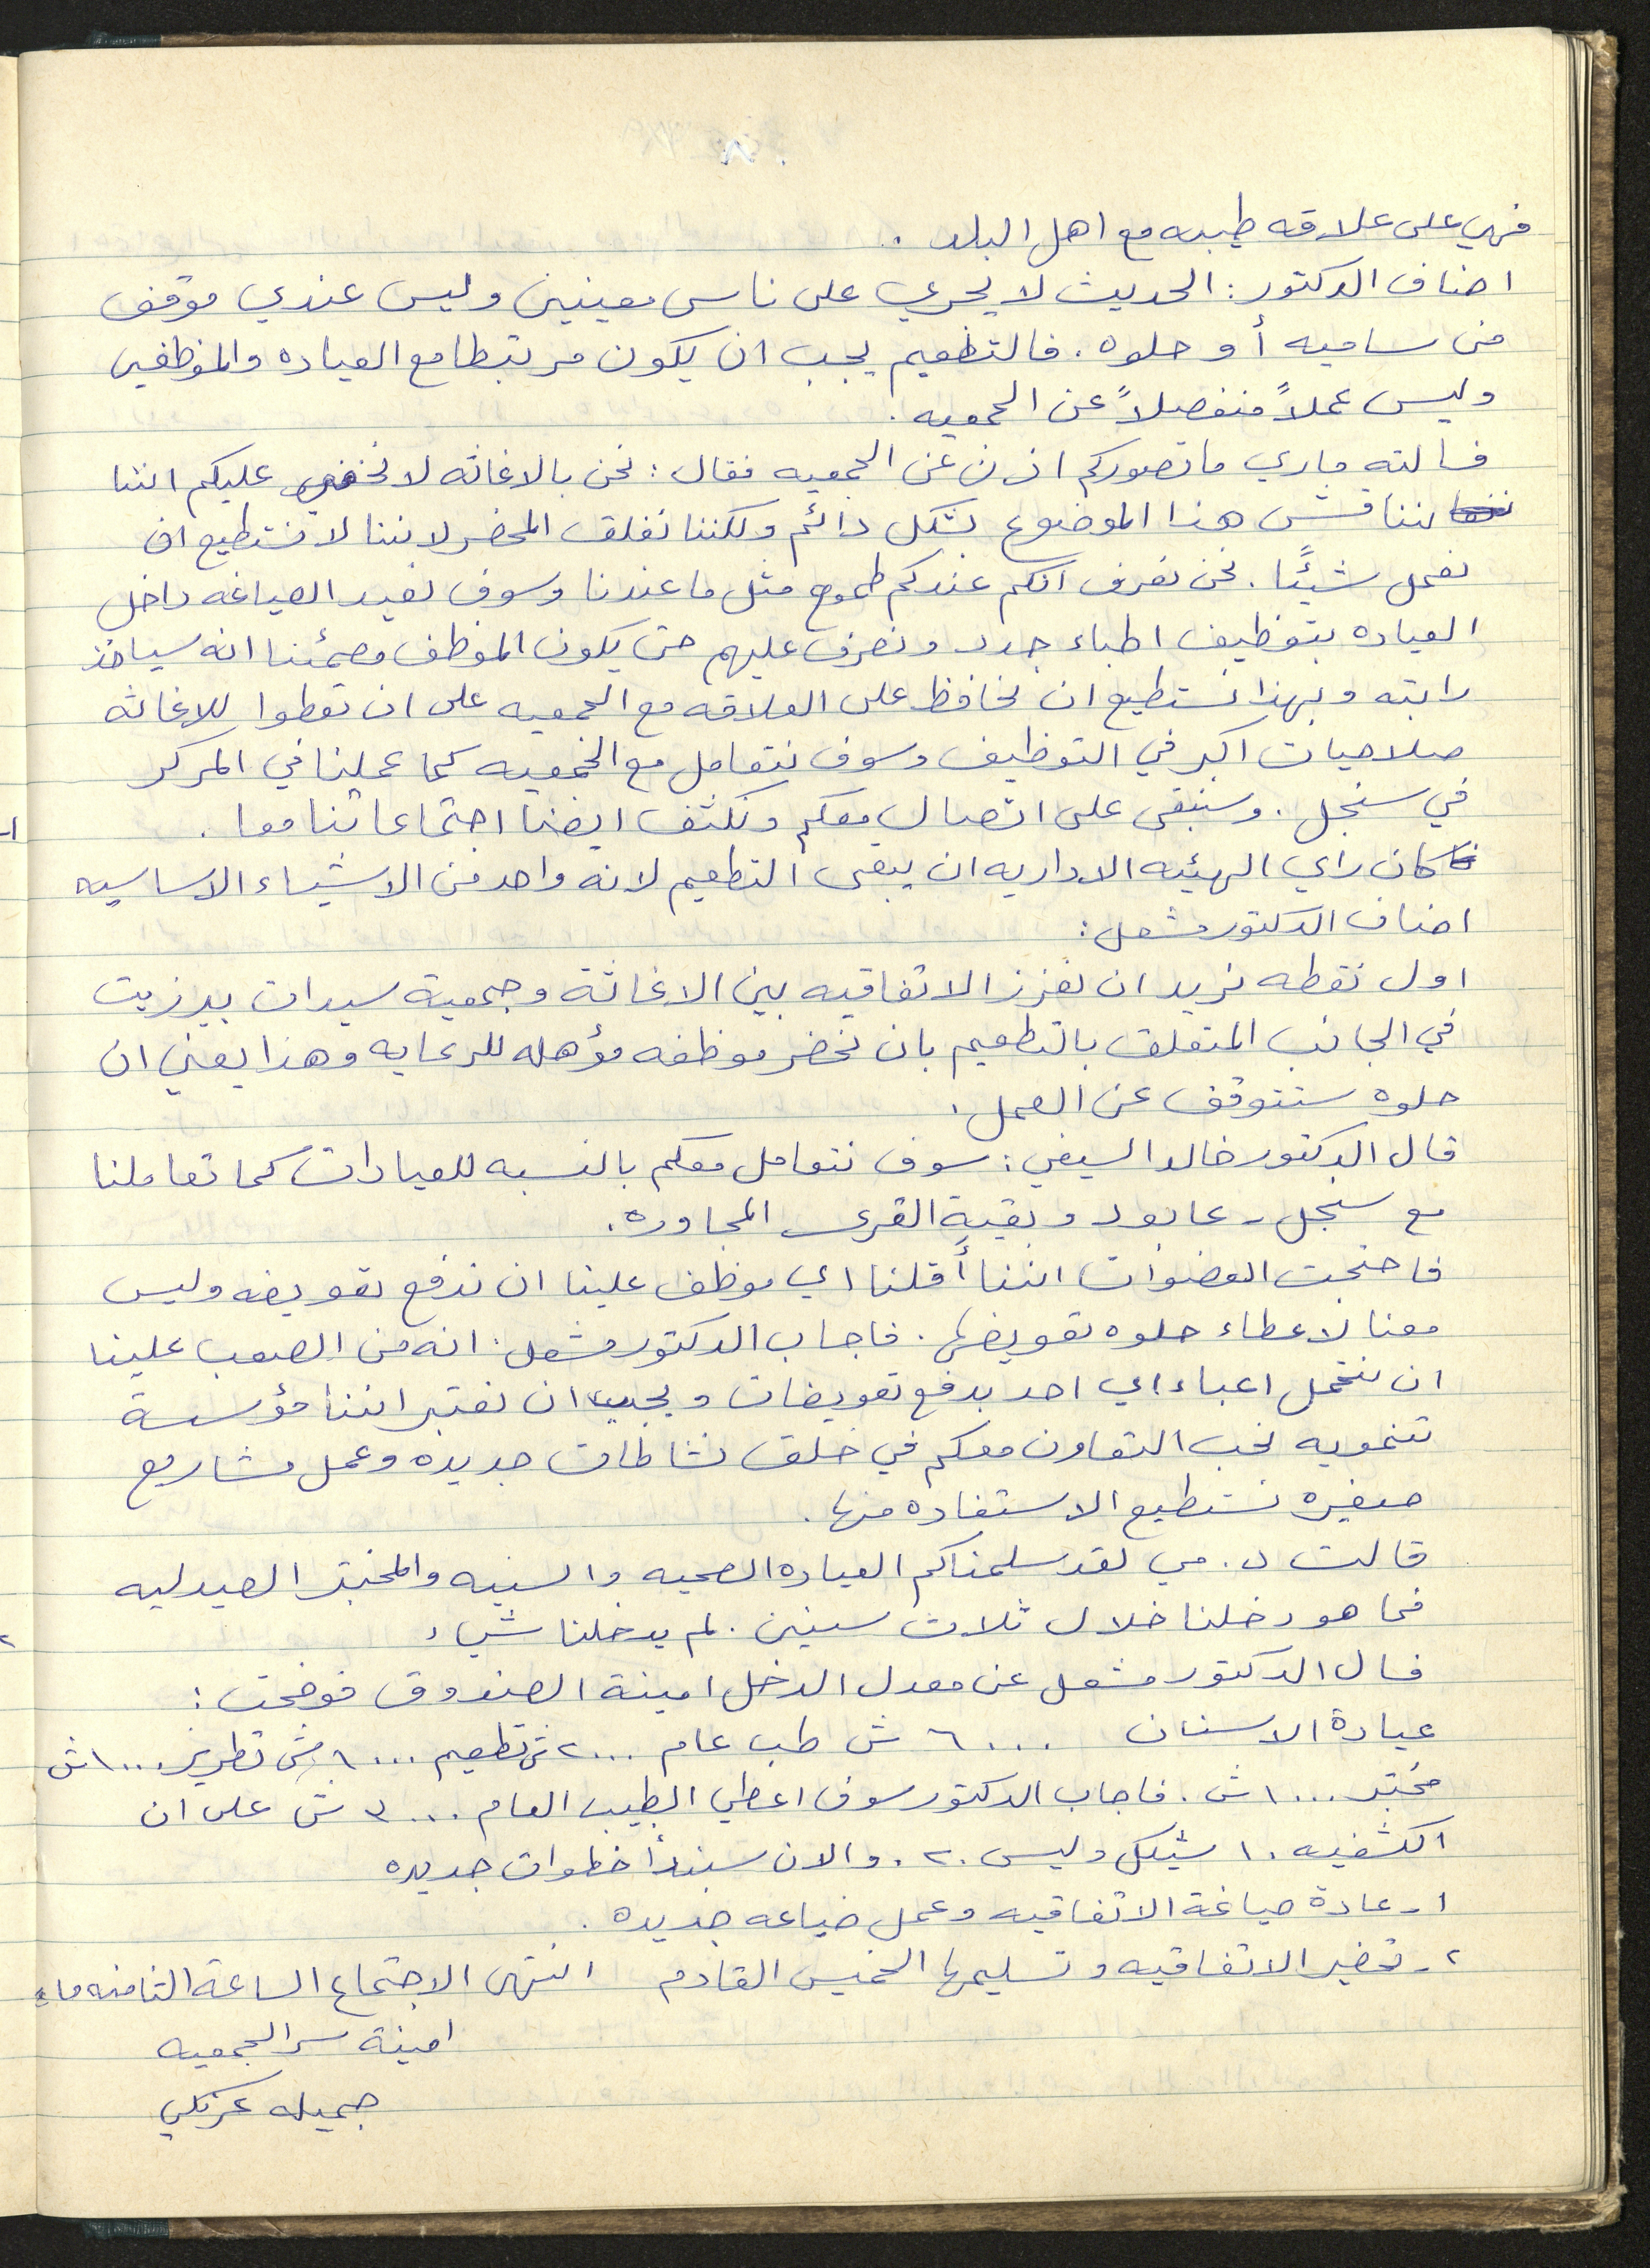 ٨
فهي على علاقه طيبه مع اهل البلد .
اضاف الدكتور : الحديث لا يجري على ناس معينين وليس عندي موقف
من ساميه أو حلوه . فالتطعيم يجب ان يكون مرتبطا مع العياده والموظفين
وليس عملاً منفصلاً عن الجمعيه .
فسالته ماري ما تصوركم اذن عن الجمعيه فقال : نحن بالاغاثه لا نخفي عليكم اننا
نناقش هذا الموضوع بشكل دائم ولكننا نغلق المحضر لاننا لا نستطيع ان
نعمل شيئًا . نحن نعرف انكم عندكم طموح مثل ما عندنا وسوف نعيد الصياغه داخل
العياده بتوظيف اطباء جدد ونصرف عليهم حتى يكون الموظف مطمئنا انه سياخذ
راتبه وبهذا نستطيع ان نحافظ على العلاقه مع الجمعيه على ان تعطوا للاغاثه
صلاحيات اكبر في التوظيف وسوف نتعامل مع الجمعيه كما عملنا في المركز
في سنجل . وسنبقى على اتصال معكم ونكثف ايضا اجتماعاتنا معا .
كان راي الهيئه الاداريه ان يبقى التطعيم لانه واحد من الاشياء الاساسيه
اضاف الدكتور مشعل :
اول نقطه نريد ان نعزز الاتفاقيه بين الاغاثة وجمعية سيدات بيرزيت
في الجانب المتعلق بالتطعيم بان نحضر موظفه مؤهله للرعايه وهذا يعني ان
حلوه ستتوقف عن العمل .
قال الدكتور خالد السيفي : سوف نتعامل معكم بالنسبه للعيادات كما تعاملنا
مع سنجل - عابود وبقية القرى المجاوره .
فاحتجت العضوات اننا أقلنا اي موظف علينا ان ندفع تعويضه وليس
معنا لاعطاء حلوه تعويضها . فاجاب الدكتور مشعل : انه من الصعب علينا
ان نتحمل اعباء اي احد بدفع تعويضات ويجب ان نعتبر اننا مؤسسة
تنمويه نحب التعاون معكم في خلق نشاطات جديده وعمل مشاريع
صغيره نستطيع الاستفاده منها .
قالت د . مي لقد سلمناكم العياده الصحيه والسنيه والمختبر الصيدليه
فما هو دخلنا خلال ثلاث سنين . لم يدخلنا شيء
فسال الدكتور مشعل عن معدل الدخل امينة الصندوق فوضحت :
عيادة الاسنان ٦٠٠٠ ش طب عام ٢٠٠٠ ش تطعيم ١٠٠٠ ش تطريز ١٠٠٠ ش
مختبر ١٠٠٠ ش . فاجاب الدكتور سوف اعطي الطبيب العام ٣٠٠٠ ش على ان
الكشفيه ١٠ شيكل وليس ٢٠ . والان سنبدأ خطوات جديده
١ - عادة صياغة الاتفاقيه وعمل صياغه جديده .
٢ - تحضير الاتفاقيه وتسليمها الخميس القادم انتهى الاجتماع الساعة الثامنه مساء
امينة سر الجمعيه
جميله